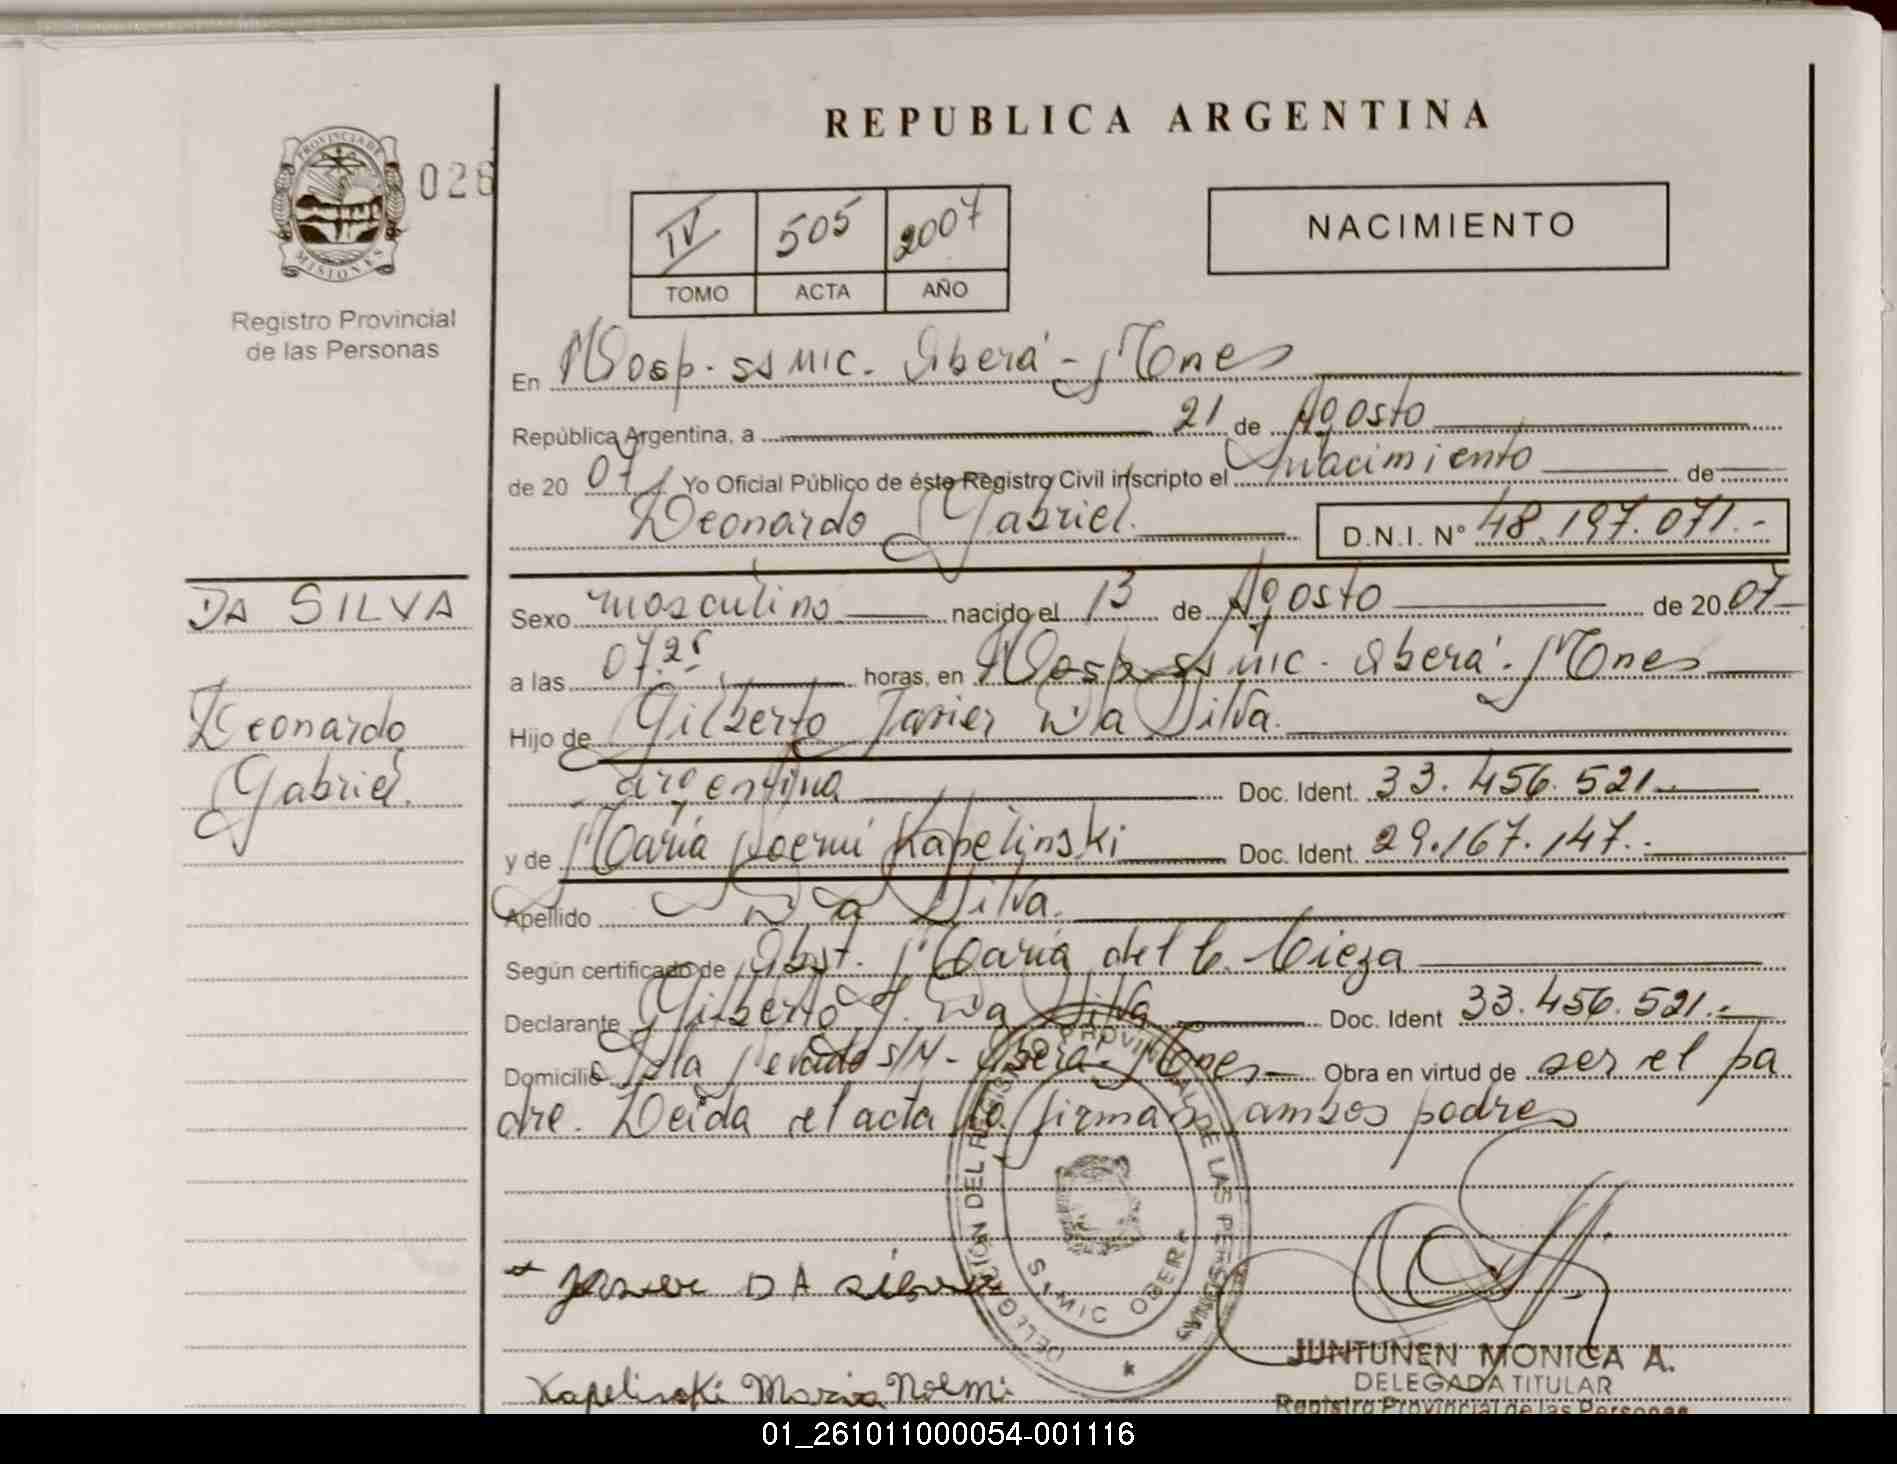 REPUBLICA ARGENTINA
PROVINCIA DE
MISIONES
026
Registro Provincial
de las Personas
IV 505 2007
TOMO ACTA AÑO
NACIMIENTO
En Hosp. SAMIC. Oberá - Mnes
República Argentina, a 21 de Agosto
de 2007 Yo Oficial Público de éste Registro Civil inscripto el nacimiento de
Leonardo Gabriel. D.N.I. N° 48.197.071.-
DA SILVA
Leonardo
Gabriel.
Sexo masculino nacido el 13 de Agosto de 2007
a las 07.25 horas, en Hosp. SAMIC. Oberá - Mnes
Hijo de Gilberto Javier Da Silva.
argentina Doc. Ident. 33.456.521.-
y de María Noemí Kapelinski Doc. Ident. 29.167.147.-
Apellido Da Silva.
Según certificado de Obst. María del C. Cieza
Declarante Gilberto J. Da Silva Doc. Ident 33.456.521.-
Domicilio S/N - Oberá - Mnes Obra en virtud de ser el pa
dre. Leída el acta la firman ambos padres
DELEGACIÓN DEL REGISTRO PROVINCIAL DE LAS PERSONAS
SAMIC OBERA
Javier DA silva
Kapelinski Maria Noemi
JUNTUNEN MONICA A.
DELEGADA TITULAR
Registro Provincial de las Personas
01_261011000054-001116